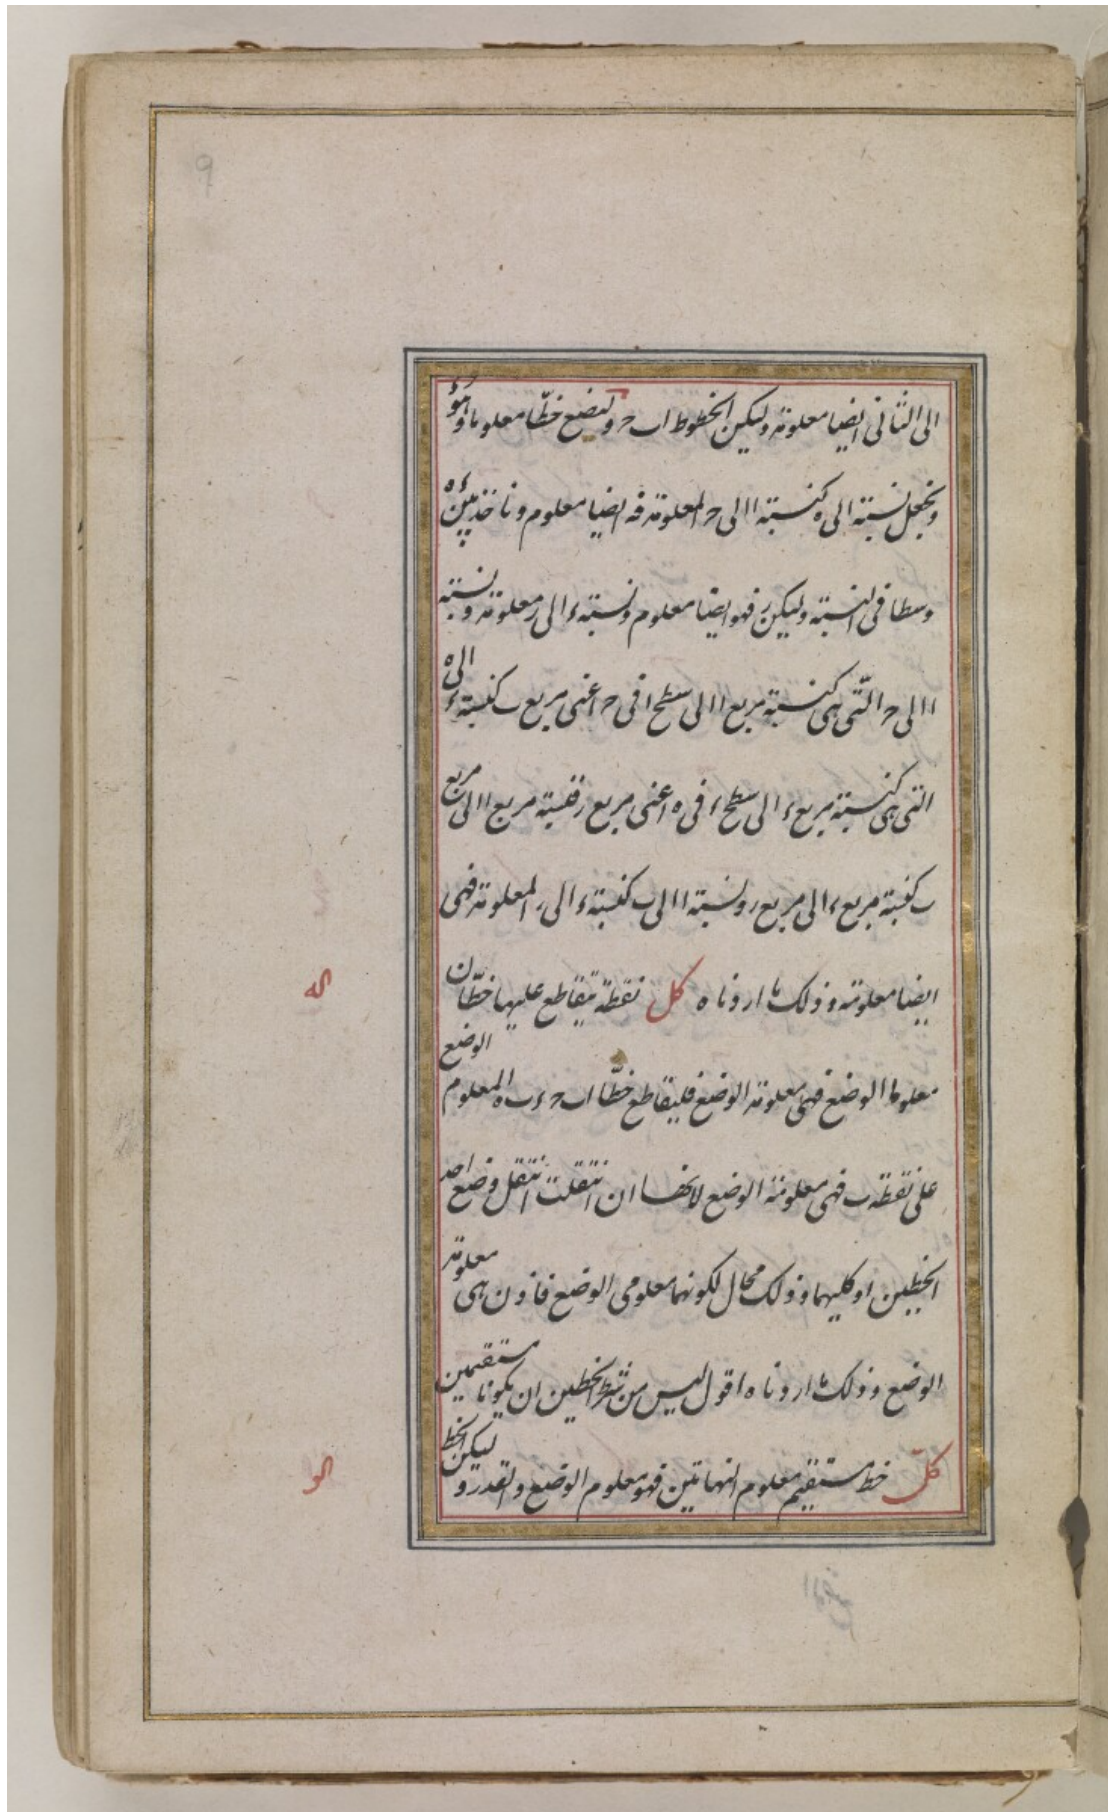 الى الثانى ايضا معلومة وليكن الخطوط ا ب ح ولنضع خطا معلوما وهو ء
ونجعل نسبته الى ه كنسبة ا الى ح المعلومة فه ايضا معلوم وناخذ بين ء ه
وسطا فى النسبة وليكن ر فهو ايضا معلوم ونسبة ء الى ر معلومة ونسبة
ا الى ح التى هى كنسبة مربع ا الى سطح ا فى ح اعنى مربع ب كنسبة ء الى ه
التى هى كنسبة مربع ء الى سطح ء فى ه اعنى مربع ر فنسبة مربع ا الى مربع
ب كنسبة مربع ء الى مربع ر ونسبة ا الى ب كنسبة ء الى ر المعلومة فهى
ايضا معلومة وذلك ما اردناه كل نقطة يتقاطع عليها خطان
معلوما الوضع فهى معلومة الوضع فليتقاطع خطا ا ب ح ء ب ه المعلوم الوضع
على نقطة ب فهى معلومة الوضع لانها ان انتقلت انتقل وضع احد
الخطين او كليهما وذلك محال لكونهما معلومى الوضع فاذن هى معلومة
الوضع وذلك ما اردناه اقول ليس من شرط الخطين ان يكونا مستقيمين
كل خط مستقيم معلوم النهايتين فهو معلوم الوضع والقدر و ليكن الخط
كه
كو